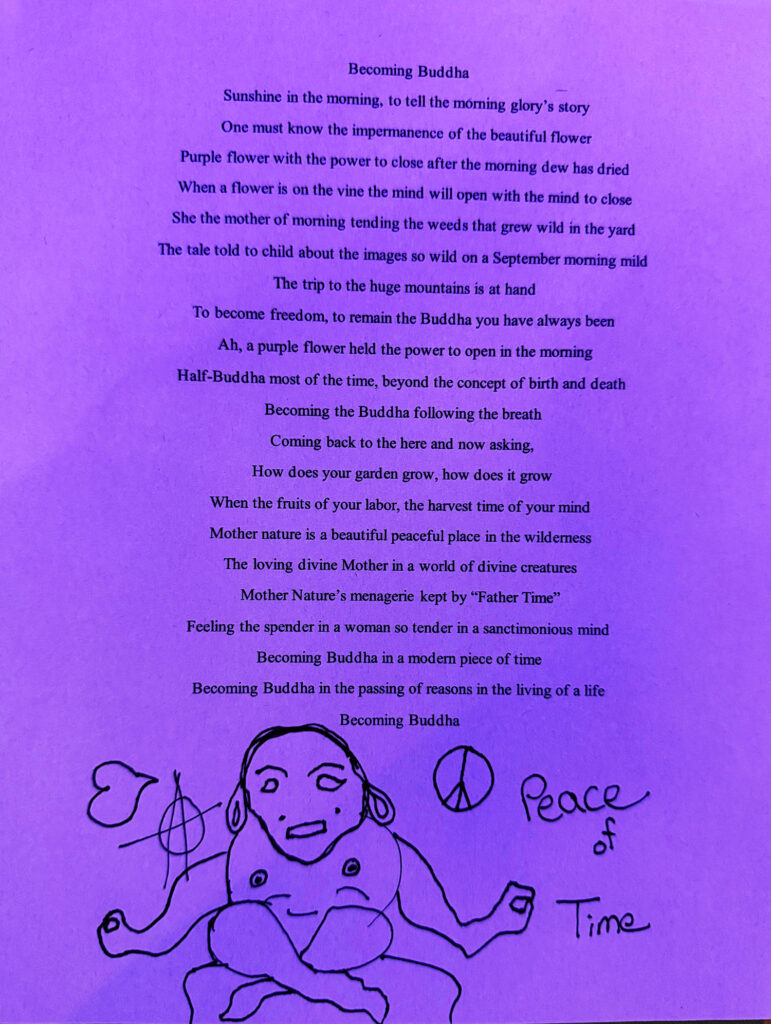 Becoming Buddha
Sunshine in the morning, to tell the morning glory's story
One must know the impermanence of the beautiful flower
Purple flower with the power to close after the morning dew has dried
When a flower is on the vine the mind will open with the mind to close
She the mother of morning tending the weeds that grew wild in the yard
The tale told to child about the images so wild on a September morning mild
The trip to the huge mountains is at hand
To become freedom, to remain the Buddha you have always been
Ah, a purple flower held the power to open in the morning
Half-Buddha most of the time, beyond the concept of birth and death
Becoming the Buddha following the breath
Coming back to the here and now asking,
How does your garden grow, how does it grow
When the fruits of your labor, the harvest time of your mind
Mother nature is a beautiful peaceful place in the wilderness
The loving divine Mother in a world of divine creatures
Mother Nature's menagerie kept by “Father Time”
Feeling the spender in a woman so tender in a sanctimonious mind
Becoming Buddha in a modern piece of time
Becoming Buddha in the passing of reasons in the living of a life
Becoming Buddha
Peace
of
Time